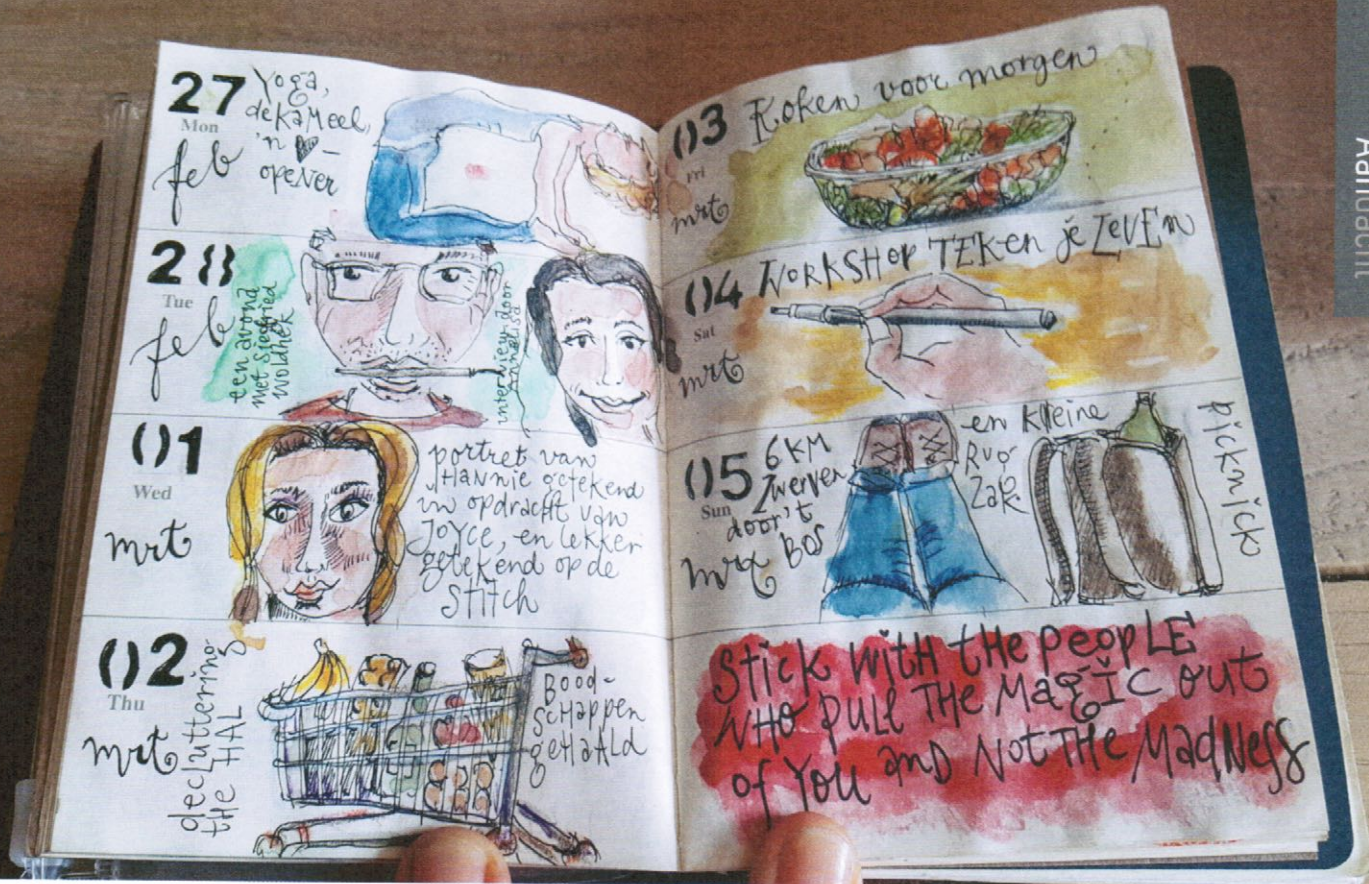 27
Mon
feb
Yoga,
de kameel,
'n ♥-
opener
28
Tue
feb
een avond
met Siegfried
Woldhek
interview door
01
Wed
mrt
portret van
Hannie getekend
in opdracht van
Joyce, en lekker
getekend op de
Stitch
02
Thu
mrt
decluttering
the HAL
Bood-
schappen
gehaald
03
Fri
mrt
Koken voor morgen
04
Sat
mrt
WORKSHOP TEKen je LeVEn
05
Sun
mrt
6 KM
Zwerven
door 't
Bos
en kleine
Rug
Zak
picknick
Stick with the people
who pull the Magic out
of You and Not THe MadNess
Aandacht